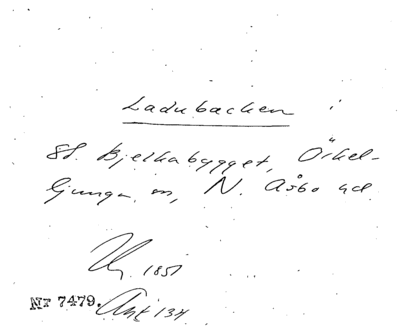 Ladubacken
St. Bjelkabygget, Örkel-
ljunga sn, N. Åsbo hd.
1851
Nr 7479. Akt 134